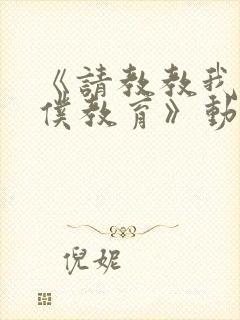 《請教教我
僕教育》動
倪妮